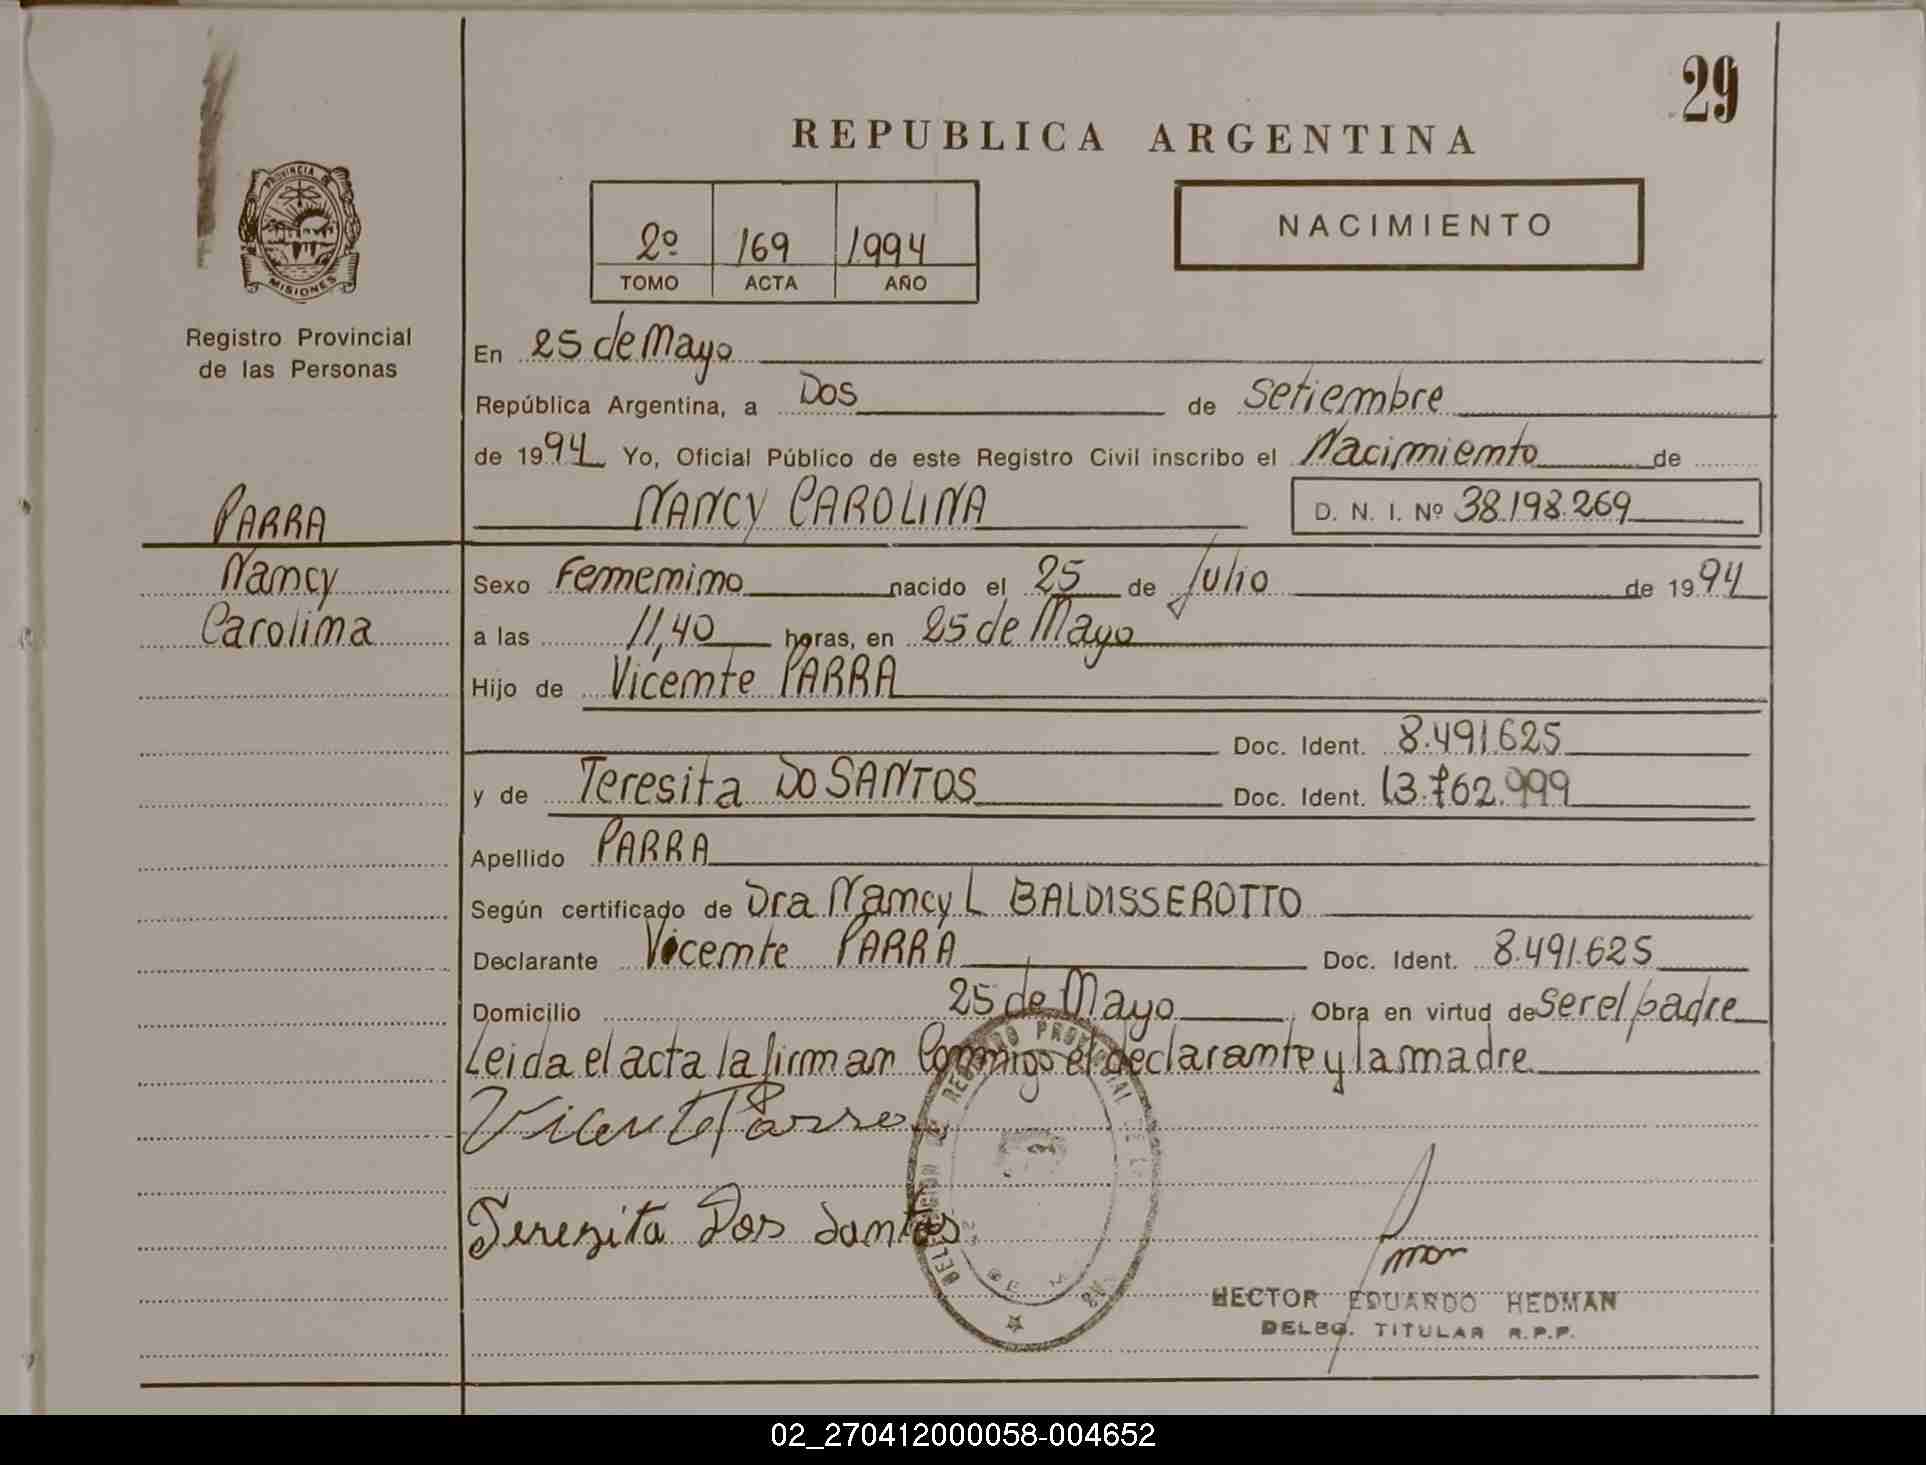 29
REPUBLICA ARGENTINA
PROVINCIA DE
MISIONES
2º 169 1994
TOMO ACTA AÑO
NACIMIENTO
Registro Provincial
de las Personas
En 25 de Mayo
República Argentina, a Dos de Setiembre
de 1994 Yo, Oficial Público de este Registro Civil inscribo el Nacimiento de
PARRA
NANCY CAROLINA D. N. I. Nº 38.198.269
Nancy
Carolina
Sexo Femenino nacido el 25 de Julio de 1994
a las 11,40 horas, en 25 de Mayo
Hijo de Vicente PARRA
Doc. Ident. 8.491.625
y de Teresita DO SANTOS Doc. Ident. 13.762.999
Apellido PARRA
Según certificado de Dra Nancy L BALDISSEROTTO
Declarante Vicente PARRA Doc. Ident. 8.491.625
Domicilio 25 de Mayo Obra en virtud de ser el padre
Leida el acta la firman Conmigo el declarante y la madre
Vicente Parra
Terezita Dos Santos
REGISTRO PROVINCIAL DE
HECTOR EDUARDO HEDMAN
DELEG. TITULAR R.P.P.
02_270412000058-004652